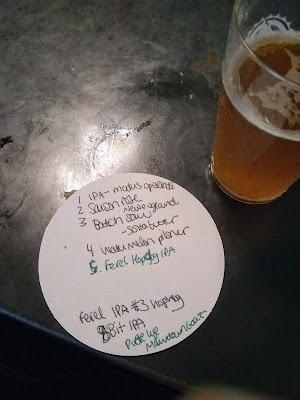 1 IPA - modus operandi
2 Saison Rose
3 Batch sour
4 Watermelon pilsner
5. Feral Hop Hog IPA
Feral IPA #3 hophog
8 Bit IPA
Mountain Goat